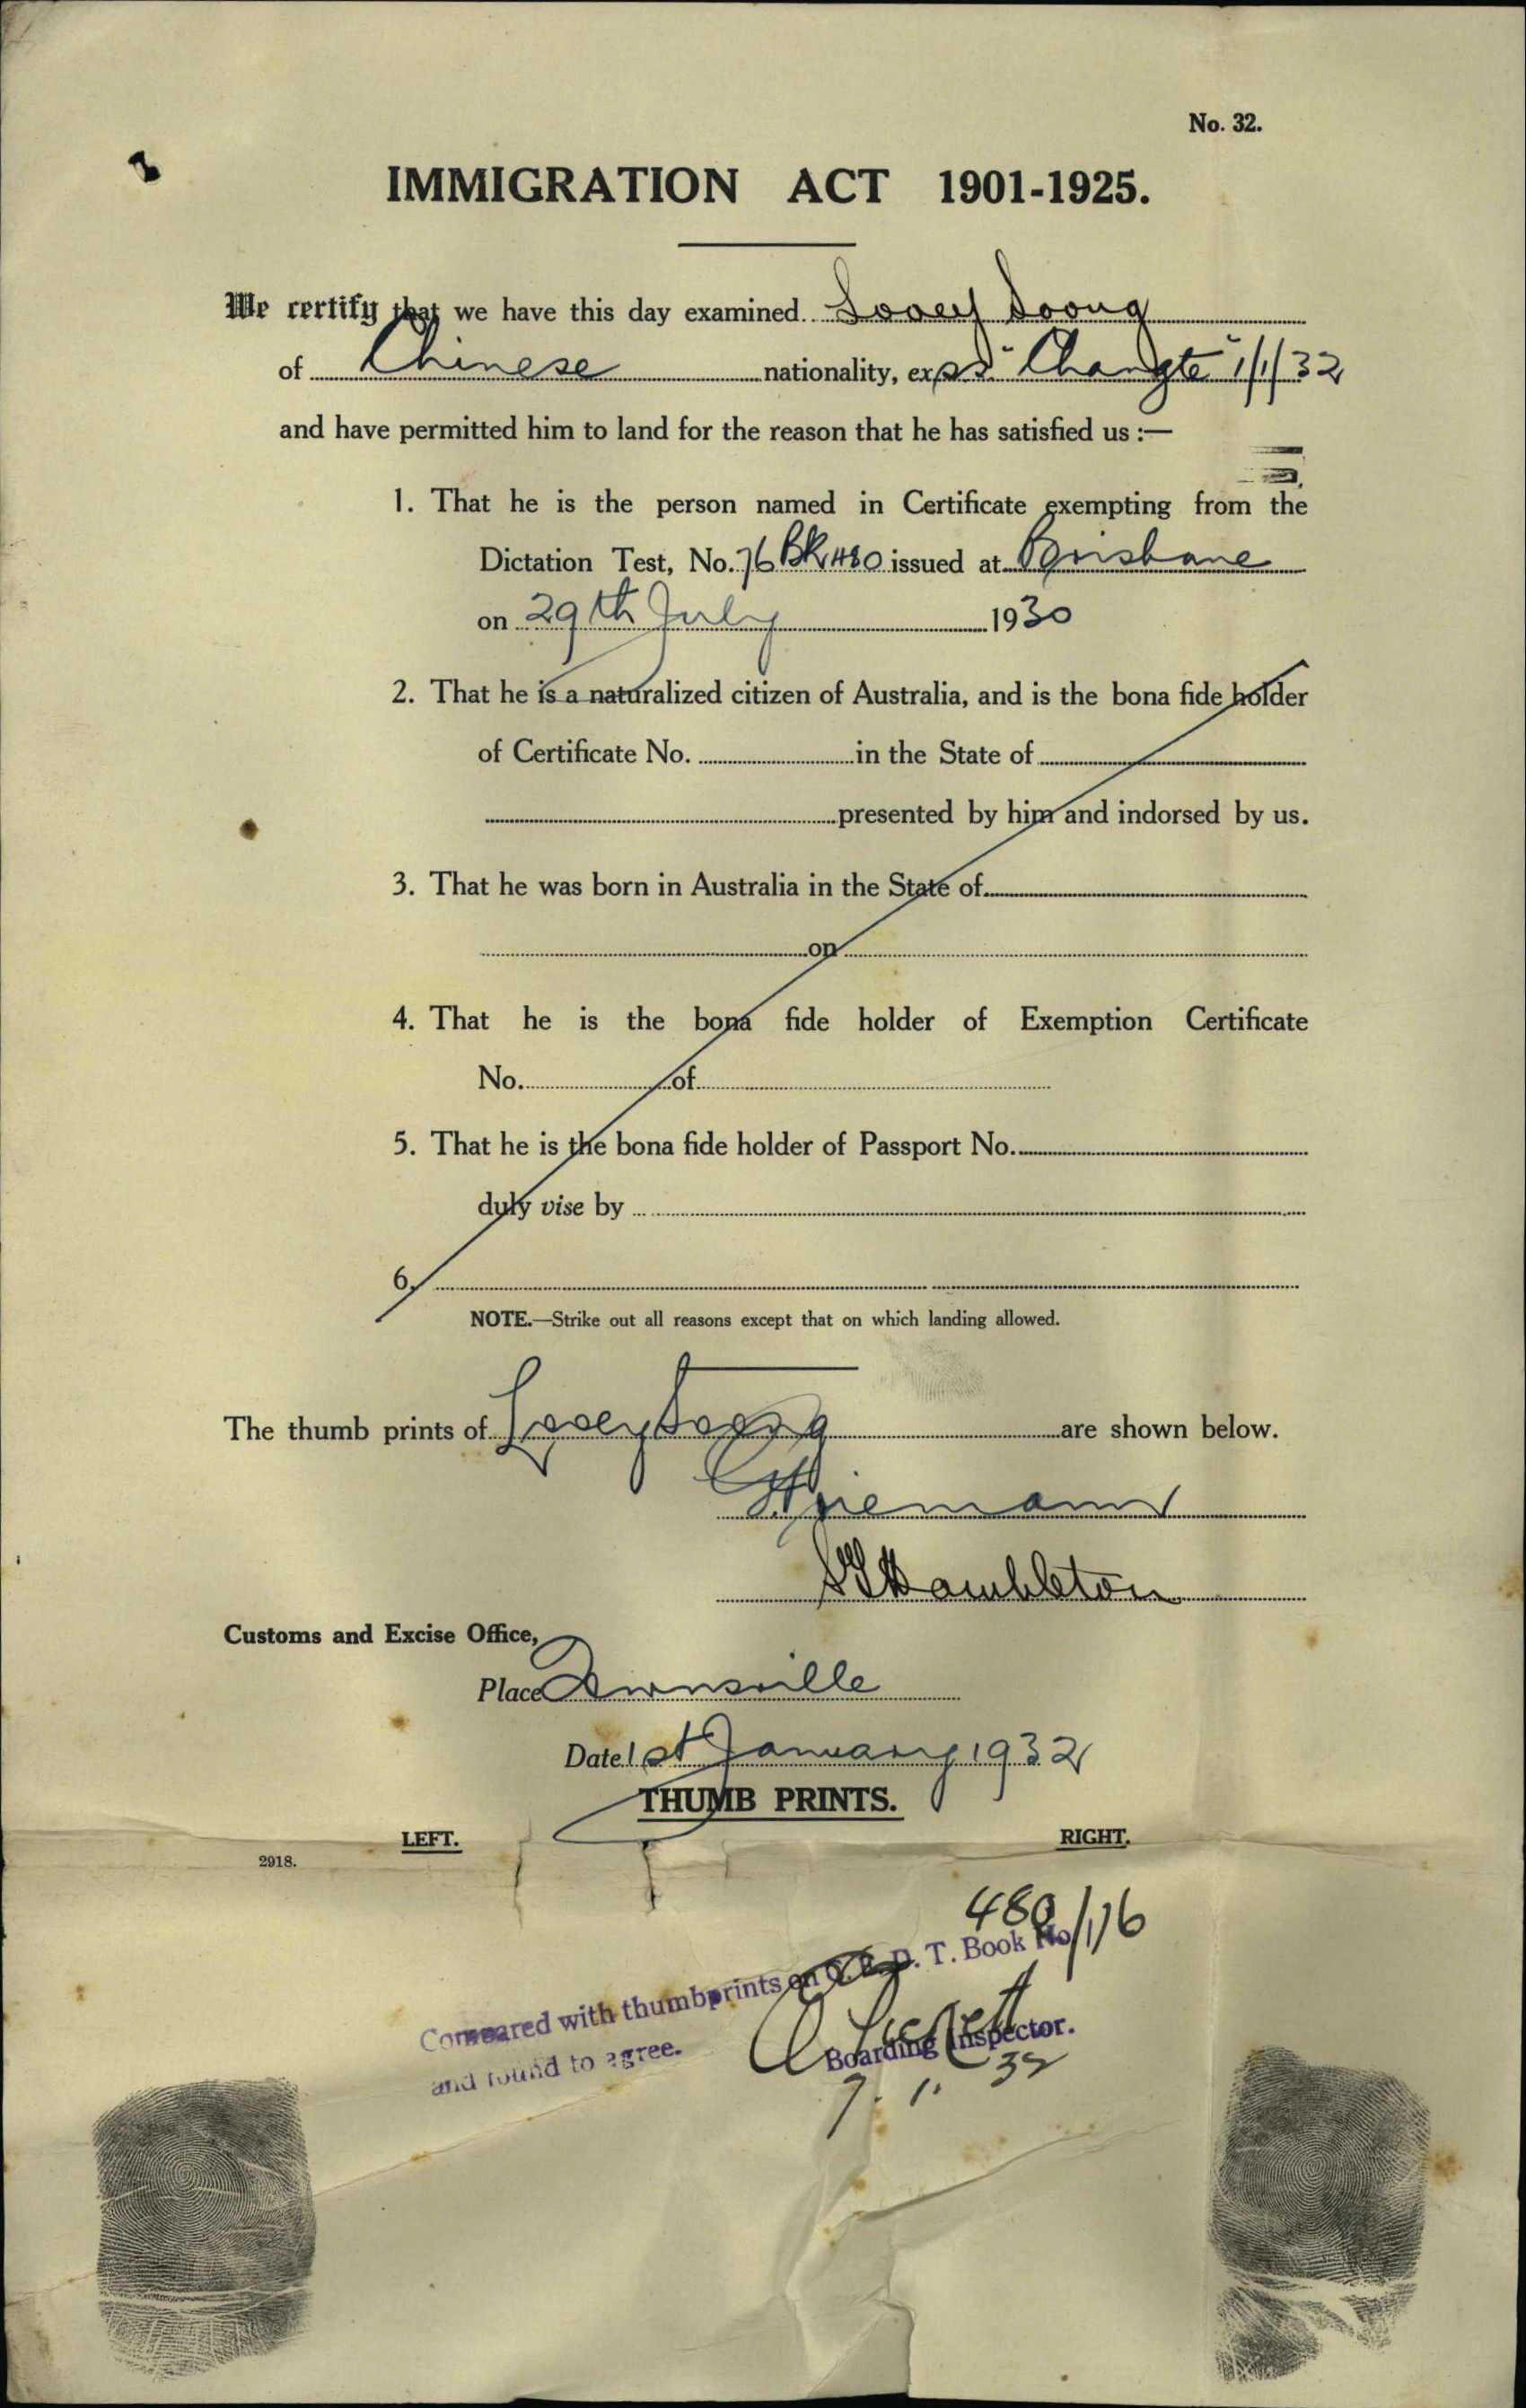 No. 32.
IMMIGRATION ACT 1901-1925.
We certify that we have this day examined Sooey Soong
of Chinese nationality, ex ss "Changte" 1/1/32
and have permitted him to land for the reason that he has satisfied us :—
1. That he is the person named in Certificate exempting from the
Dictation Test, No. 76 BK 480 issued at Brisbane
on 29th July 1930
2. That he is a naturalized citizen of Australia, and is the bona fide holder
of Certificate No. in the State of
presented by him and indorsed by us.
3. That he was born in Australia in the State of
on
4. That he is the bona fide holder of Exemption Certificate
No. of
5. That he is the bona fide holder of Passport No.
duly vise by
6.
NOTE.—Strike out all reasons except that on which landing allowed.
The thumb prints of Sooey Soong are shown below.
Hambleton
Customs and Excise Office,
Place Townsville
Date 1st January 1932
THUMB PRINTS.
LEFT. RIGHT.
2918.
480/76
Compared with thumbprints on C. E. D. T. Book No
and found to agree.
Boarding Inspector.
7. 1. 32